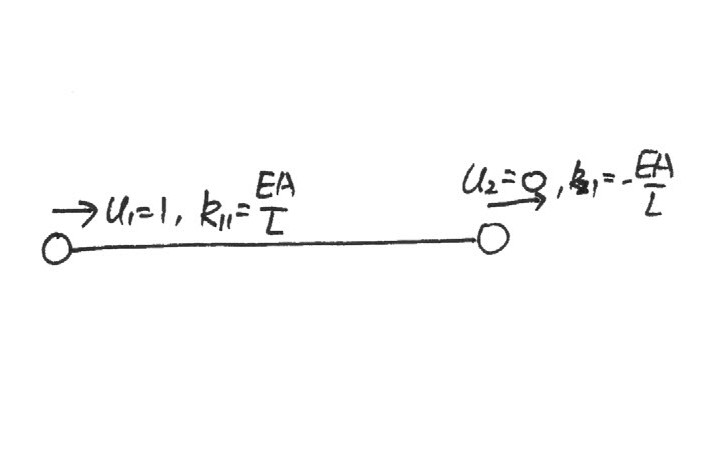 → u₁=1, k₁₁=EA/L
u₂=0, k₂₁=-EA/L